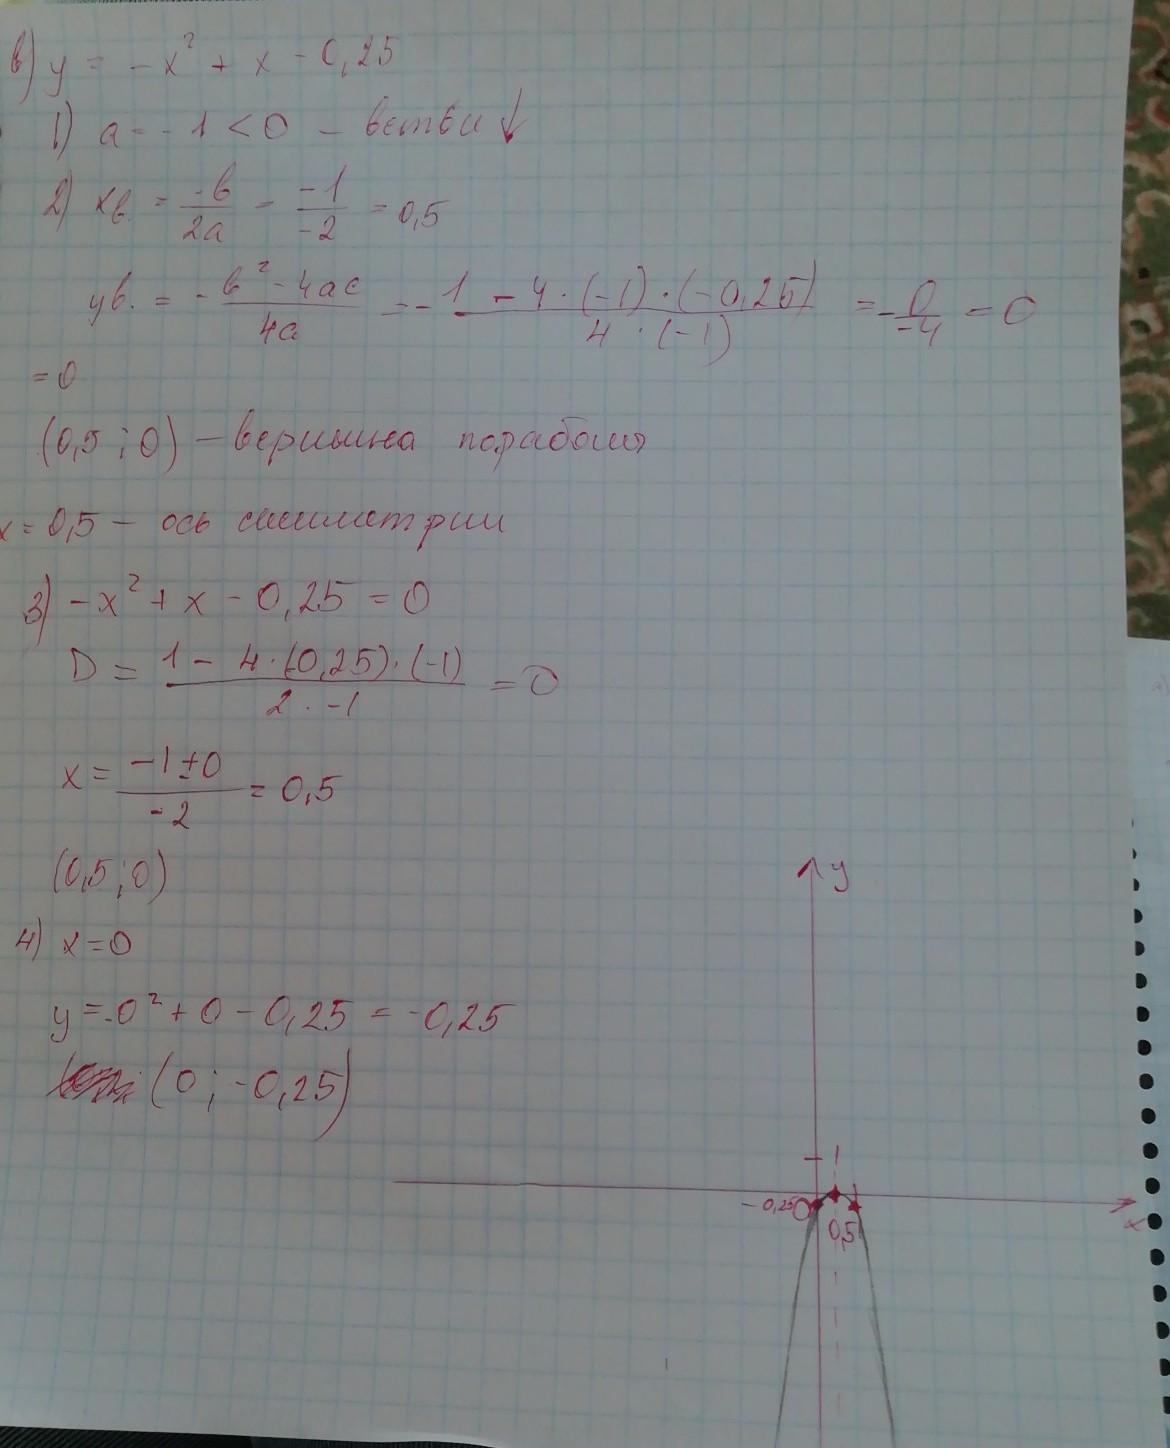 в) y = -x² + x - 0,25
1) a = -1 < 0 - ветви ↓
2) xв. = -b/2a = -1/-2 = 0,5
yв. = - b² - 4ac/4a = - 1 - 4 · (-1) · (-0,25)/4 · (-1) = - 0/-4 = 0
= 0
(0,5 ; 0) - вершина параболы
x = 0,5 - ось симметрии
3) -x² + x - 0,25 = 0
D = 1 - 4 · (-0,25) · (-1)/2 · -1 = 0
x = -1 ± 0/-2 = 0,5
(0,5 ; 0)
4) x = 0
y = -0² + 0 - 0,25 = -0,25
(0 ; -0,25)
y
1
-0,25 0 1
0,5
x